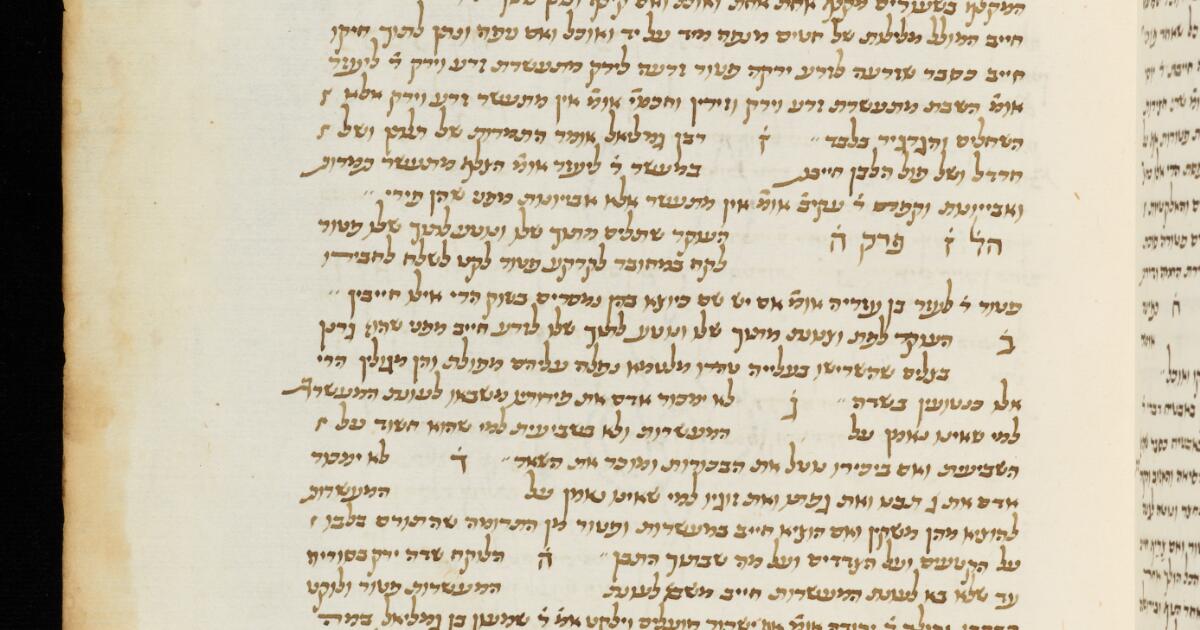 חייב המולל מלילות של חטים מנפה מיד על יד ואוכל ואם נפה ונתן לתוך חיקו
חייב כסבר שזרעה לזרע ירקה פטור זרעה לירק מתעשרת זרע וירק ר׳ ליעזר
אומ׳ השבת מתעשרת זרע וירק וזירין וחכמ׳ אומ׳ אין מתעשר זרע וירק אלא
השחלים והגרגיר בלבד ז רבן גמליאל אומר התמרות של תלתן ושל
חרדל ושל פול הלבן חייבות במעשר ר׳ ליעזר אומ׳ הצלף מתעשר תמרות
ואבייונות וקפרס ר׳ עקיב׳ אומ׳ אין מתעשר אלא אביונות מפני שהן פירי
הל׳ ז פרק ה העוקר שתלים מתוך שלו ונוטע לתוך שלו פטור
לקח במחובר לקרקע פטור לקט לשלח לחבירו
פטור ר׳ לעזר בן עזריה אומ׳ אם יש שם כיוצא בהן נמכרים בשוק הרי אילו חייבין
ב העוקר לפת וצנונות מתוך שלו ונוטע לתוך שלו לזרע חייב מפני שהוא גרנן
בצלים שהשרישו בעלייה טהרו מלטמא נפלה עליהם מפולת והן מגולין הרי
אלו כנטועין בשדה ג לא ימכור אדם את פירותיו משבאו לעונת המעשרות
למי שאינו נאמן על המעשרות ולא בשביעית למי שהוא חשוד על
השביעית ואם ביכירו נוטל את הבכורות ומוכר את השאר ד לא ימכור
אדם את תבנו ואת גפתו ואת זוגיו למי שאינו נאמן על המעשרות
להוציא מהן משקין ואם הוציא חייב במעשרות ופטור מן התרומה שהתורם בלבו
על הקטעים ועל הצדדים ועל מה שבתוך התבן ה הלוקח שדה ירק בסוריא
עד שלא בא לעונת המעשרות חייב משבא לעונת המעשרות פטור ולוקט